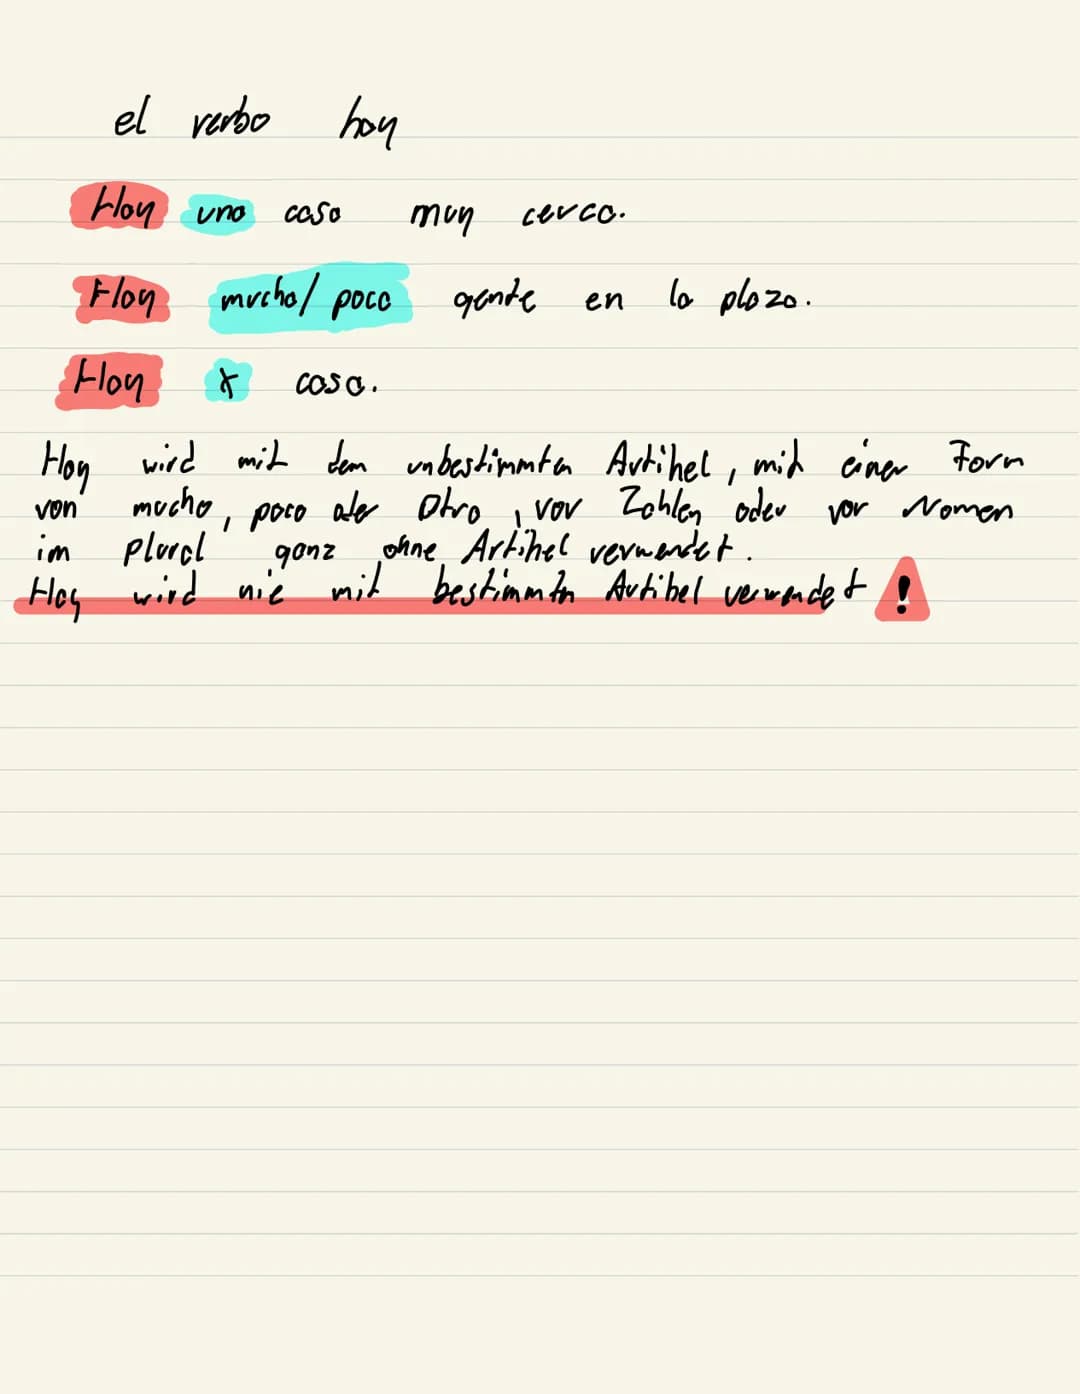 el verbo hay
Hay una casa muy cerca.
Hay mucha/ poca gente en la plaza.
Hay x casa.
Hay wird mit dem unbestimmten Artikel, mit einer Form
von mucho, poco oder Otro, vor Zahlen oder vor Nomen
im plural ganz ohne Artikel verwendet.
Hay wird nie mit bestimmtn Artikel verwendet !